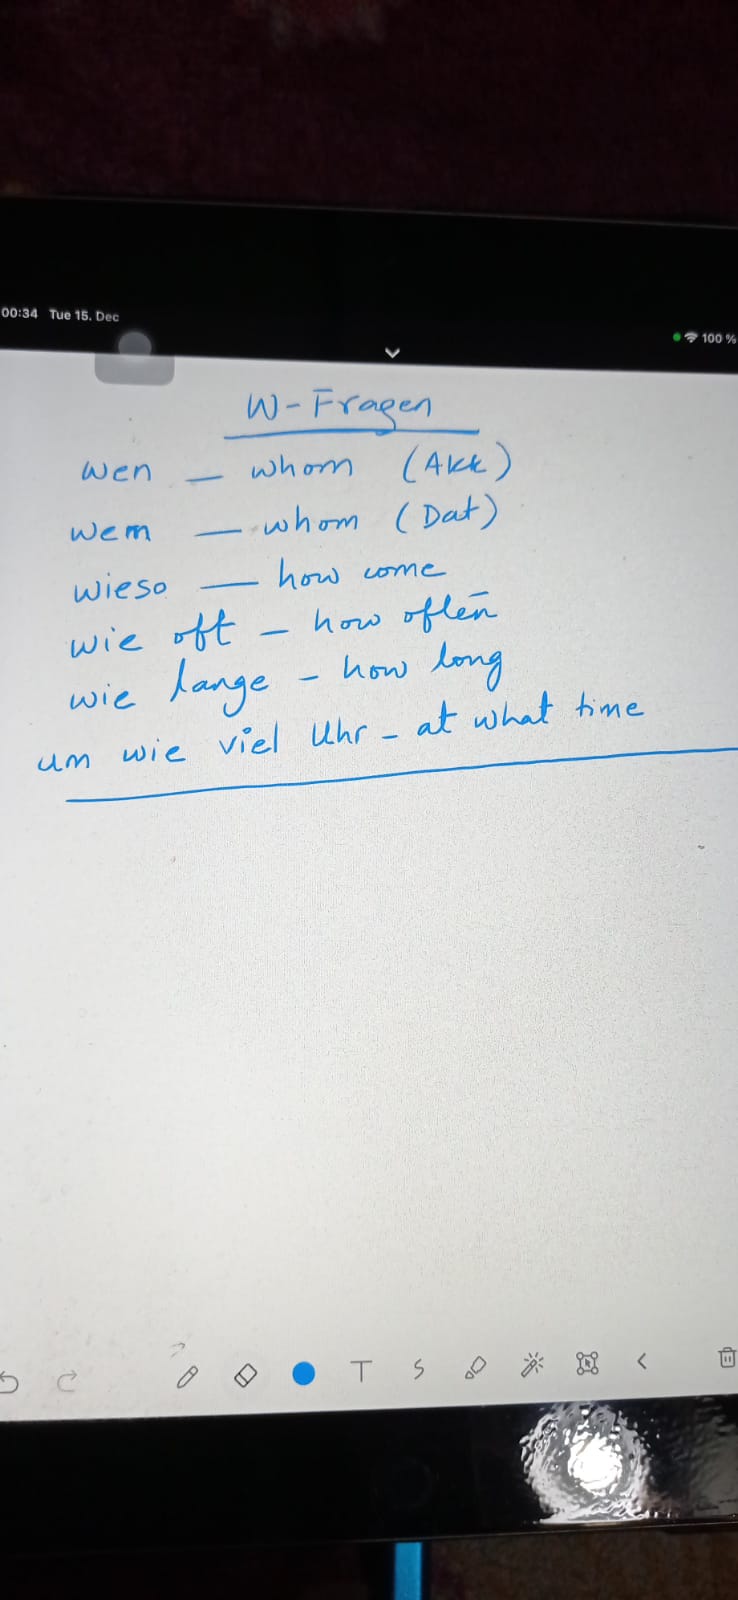 00:34 Tue 15. Dec
100 %
W-Fragen
wen — whom (Akk)
wem — whom (Dat)
wieso — how come
wie oft – how often
wie lange – how long
um wie viel Uhr – at what time
T
S